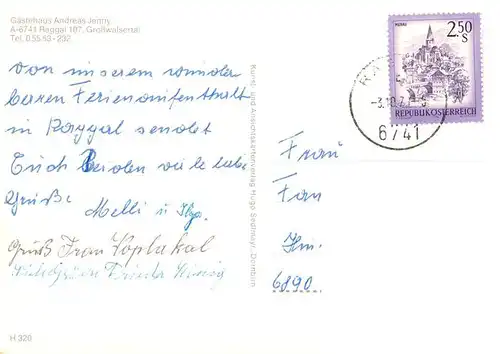 Gästehaus Andreas Jenny
A-6741 Raggal 187, Großwalsertal
Tel. 0 55 53 - 202
von unserem wunder
baren Ferienaufenthalt
in Raggal sendet
Euch Beiden viele liebe
Grüße
Melli u.
Gruß Frau
H 320
Kunst- und Ansichtskartenverlag Hugo Sedlmayr, Dornbirn
MURAU
2.50
S
REPUBLIK ÖSTERREICH
6741
Frau
Fam
Hm.
6890.